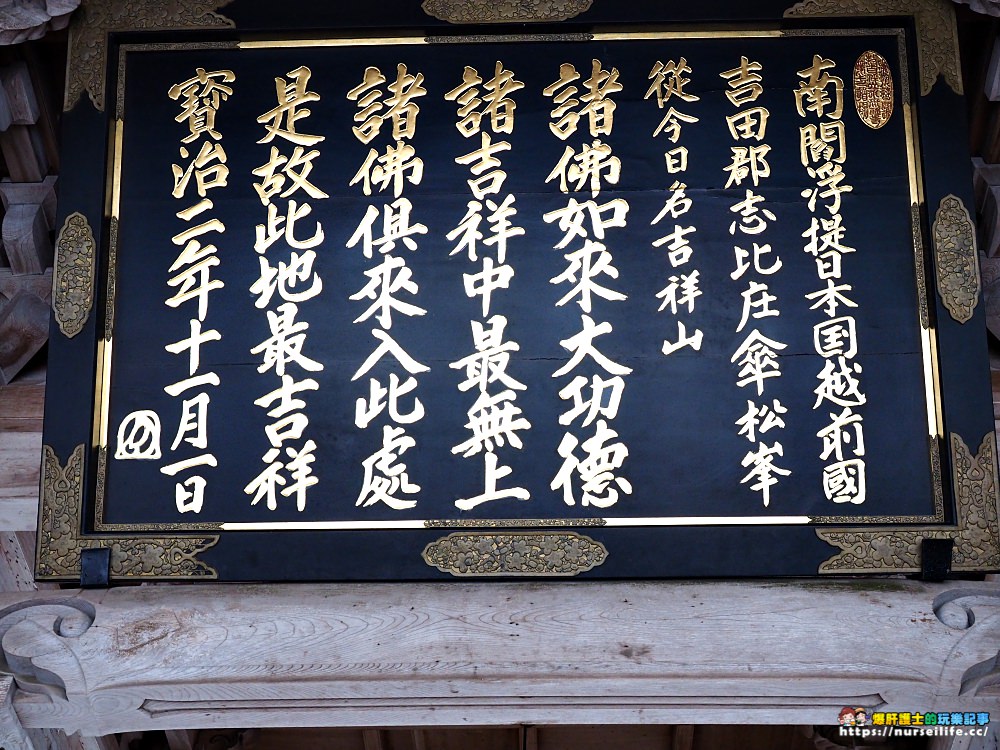 南閻浮提日本国越前國
吉田郡志比庄傘松峯
從今日名吉祥山
諸佛如來大功德
諸吉祥中最無上
諸佛俱來入此處
是故此地最吉祥
寳治二年十一月一日
爆肝護士的玩樂記事
https://nurseilife.cc/